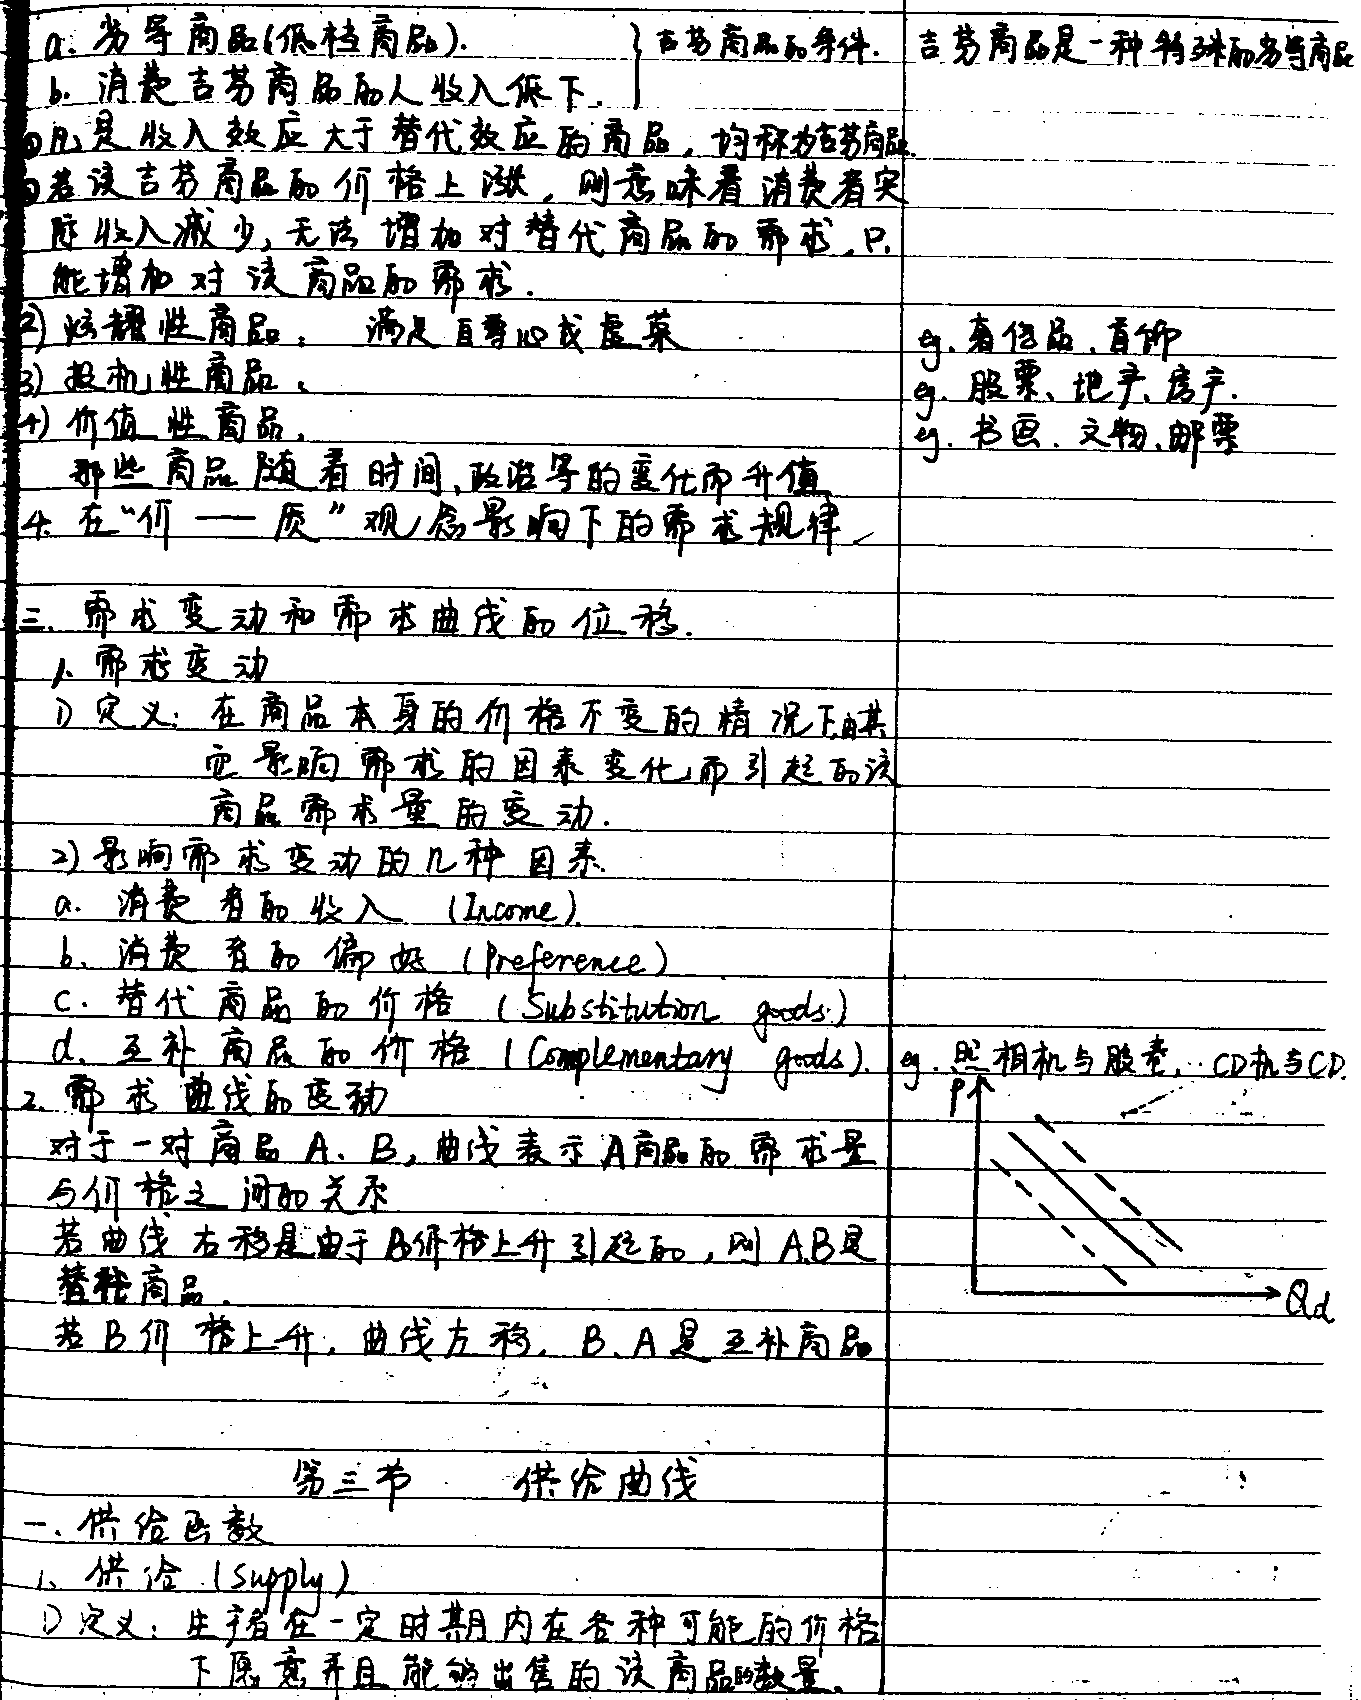 a. 劣等商品(低档商品). } 吉芬商品的条件. 吉芬商品是一种特殊的劣等商品
b. 消费吉芬商品的人收入低下.
①凡是收入效应大于替代效应的商品，均称为吉芬商品.
②若该吉芬商品的价格上涨，则意味着消费者实
际收入减少，无法增加对替代商品的需求，只
能增加对该商品的需求.
2) 炫耀性商品， 满足自尊心或虚荣 eg. 奢侈品、首饰
3) 投机性商品， eg. 股票、地产、房产.
4) 价值性商品， eg. 书画、文物、邮票
那些商品随着时间、政治等的变化而升值
4. 在“价——质”观念影响下的需求规律
三. 需求变动和需求曲线的位移.
1. 需求变动
1) 定义: 在商品本身的价格不变的情况下,由其
它影响需求的因素变化,而引起的该
商品需求量的变动.
2) 影响需求变动的几种因素.
a. 消费者的收入 (Income).
b. 消费者的偏好 (Preference)
c. 替代商品的价格 (Substitution goods.)
d. 互补商品的价格 (Complementary goods). eg. 照相机与胶卷, CD机与CD.
2. 需求曲线的变动
P
对于一对商品 A. B, 曲线表示A商品的需求量
与价格之间的关系
若曲线右移是由于B价格上升引起的，则 A.B是
替代商品.
Qd
若B价格上升，曲线左移，B、A是互补商品
第三节 供给曲线
一. 供给函数
1. 供给 (Supply)
1) 定义: 生产者在一定时期内在各种可能的价格
下愿意并且能够出售的该商品的数量.